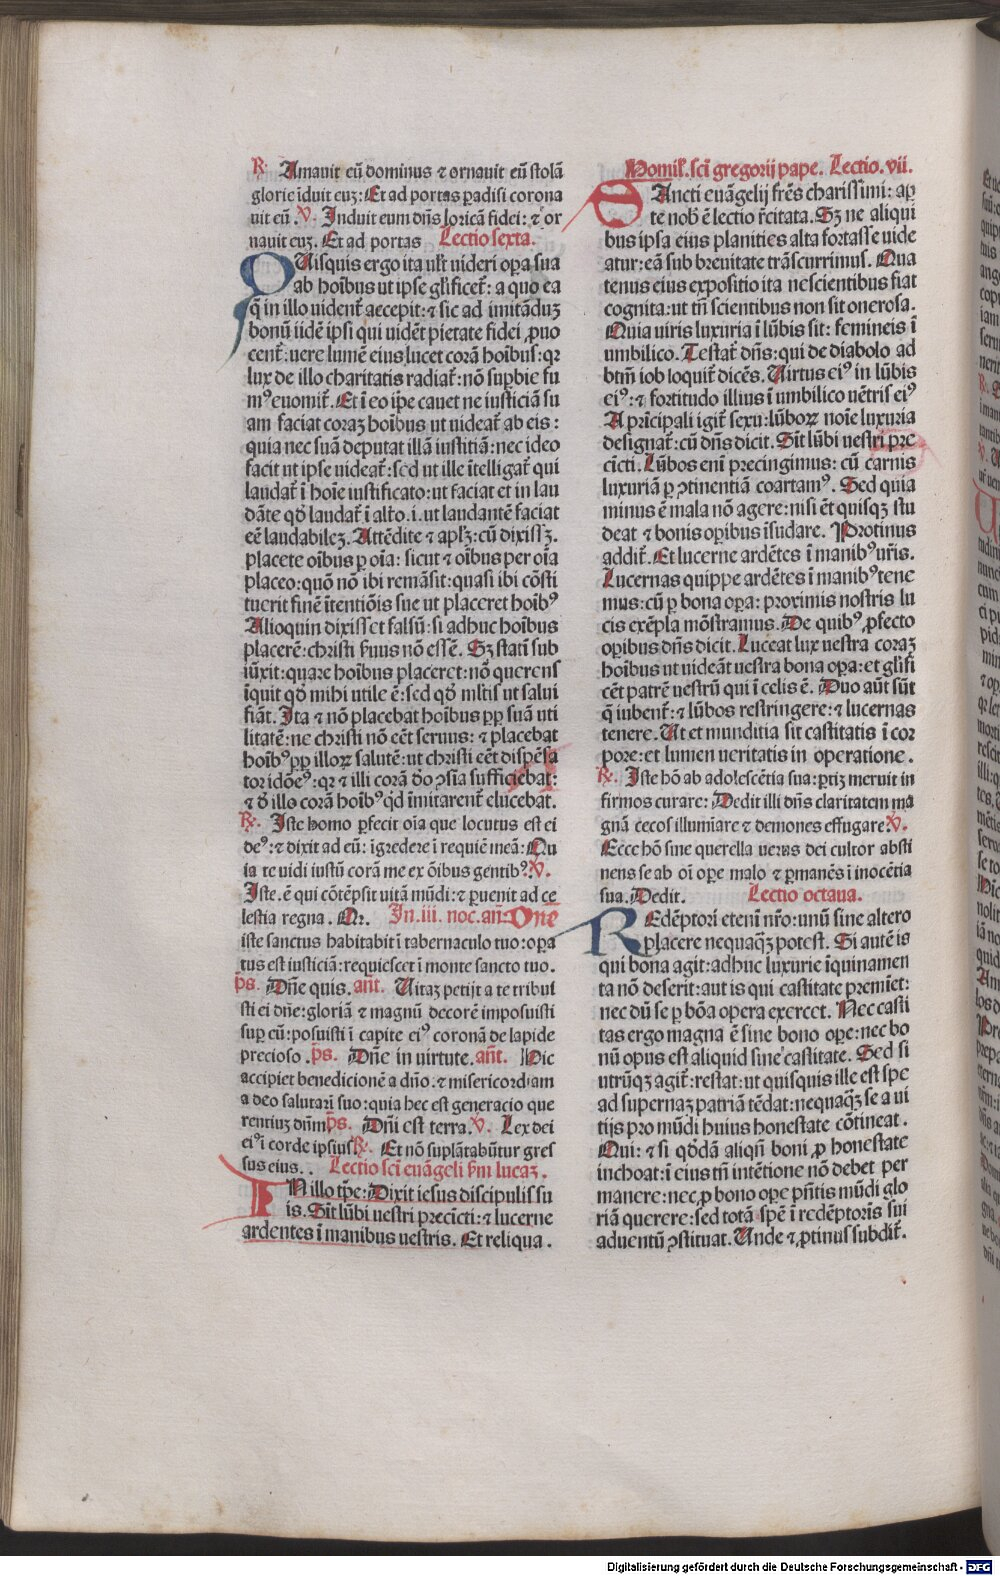 ℟. Amauit eū dominus ⁊ ornauit eū ſtolā
glorie īduit euꝫ: Et ad portas ꝑadiſi corona
uit eū. ℣. Induit eum dn̄s loricā fidei: ⁊ or
nauit euꝫ. Et ad portas Lectio ſexta.
QUiſquis ergo ita ult̄ uideri oꝑa ſua
ab hoībus ut ipſe gl̄ificet̄: a quo ea
q̄ in illo uident̄ accepit: ⁊ ſic ad imitāduꝫ
bonū iidē ipſi qui uidēt pietate fidei ꝓuo
cent̄: uere lumē eius lucet corā hoībuſ: qꝛ
lux de illo charitatis radiat̄: nō ſuꝑbie fu
mꝰ euomit̄. Et ī eo iꝑe cauet ne iuſticiā ſu
am faciat coraꝫ hoībus ut uideat̄ ab eis:
quia nec ſuā deputat illā iuſtitiā: nec ideo
facit ut ipſe uideat̄: ſed ut ille ītelligat̄ qui
laudat̄ ī hoīe iuſtificato: ut faciat et in lau
dāte qd̄ laudat̄ ī alt̄o .i. ut laudantē faciat
eē laudabileꝫ. Attēdite ⁊ apl̄ꝫ: cū dixiſſꝫ.
placete oībus ꝑ oīa: ſicut ⁊ oībus per oīa
placeo: quō nō ibi remāſit: quaſi ibi cōſti
tuerit finē ītentiōis ſue ut placeret hoībꝰ
Alioquin dixiſſet falſū: ſi adhuc hoībus
placerē: chriſti ſ̄uus nō eſſē. Sꝫ ſtatī ſub
iūxit: quare hoībus placeret: nō querens
īquit qd̄ mihi utile ē: ſed qd̄ ml̄tis ut ſalui
fiāt. Ita ⁊ nō placebat hoībus ꝓꝑ ſuā uti
litatē: ne chriſti nō eēt ſeruus: ⁊ placebat
hoībꝰ ꝓꝑ illoꝝ ſalutē: ut chriſti eēt diſpēſa
tor idōeꝰ: qꝛ ⁊ illi corā do̅ ꝯſia ſufficiebat:
⁊ d̄ illo corā hoībꝰ qd̄ īmitarent̄ elucebat.
℟. Iſte homo ꝑfecit oīa que locutus eſt ei
deꝰ: ⁊ dixit ad eū: īgredere ī requiē meā: Qu
ia te uidi iuſtū corā me ex ōibus gentibꝰ. ℣.
Iſte .ē qui cōtēpſit uitā mūdi: ⁊ ꝑuenit ad ce
leſtia regna. Qr. In .iii. noc. an̄: Dn̄e
iſte sanctus habitabit ī tabernaculo tuo: oꝑa
tus eſt iuſticiā: requieſcet ī monte ſancto tuo.
p̄s. Dn̄e quis. an̄t. Uitaꝫ petijt a te tribuſ
ſti ei dn̄e: gloriā ⁊ magnū decorē impoſuiſti
ſuꝑ eū: poſuiſti ī capite eiꝰ coronā de lapide
precioſo. p̄s. Dn̄e in uirtute. an̄t. Hic
accipiet benedicionē a dn̄o: ⁊ miſericordiam
a deo ſalutari ſuo: quia hec eſt generacio que
rentiuꝫ dn̄m p̄s. Dn̄i eſt terra. ℣. Lex dei
eiꝰ ī corde ipſius ℟. Et nō ſuplātabūtur greſ
ſus eius.. Lectio ſci̅ euāgeli ẜm lucaꝫ.
IN illo tp̄e: Dixit ieſus diſcipulis ſu
is. Sīt lūbi ueſtri precīcti: ⁊ lucerne
ardentes ī manibus ueſtris. Et reliqua.
Homil̄. ſci̅ gregorij pape. Lectio. vii.
SAncti euāgelij fr̄es chariſſimi: aꝑ
te nob̄ ē lectio r̄citata. Sꝫ ne aliqui
bus ipſa eius planities alta fortaſſe uide
atur: eā ſub breuitate trāſcurrimus. Qua
tenus eius expoſitio ita neſcientibus fiat
cognita: ut tn̄ ſcientibus non ſit oneroſa.
Quia uiris luxuria ī lūbis ſit: femineis ī
umbilico. Teſtat̄ dn̄s: qui de diabolo ad
btm̄ iob loquit̄ dicēs. Uirtus eiꝰ in lūbis
eiꝰ: ⁊ fortitudo illius ī umbilico uētris eiꝰ
A prīcipali igit̄ ſexu: lūboꝝ noīe luxuria
deſignat̄: cū dn̄s dicit. Sīt lūbi ueſtri pre
cīcti. Lūbos enī precingimus: cū carnis
luxuriā ꝑ ꝯtinentiā coartamꝰ. Sed quia
minus ē mala nō agere: niſi ēt quiſqꝫ ſtu
deat ⁊ bonis oꝑibus īſudare. Protinus
addit̄. Et lucerne ardētes ī manibꝰ ur̄is.
Lucernas quippe ardētes ī manibꝰ tene
mus: cū ꝑ bona oꝑa: proximis noſtris lu
cis exēpla mōſtramus. De quibꝰ ꝓfecto
oꝑibus dn̄s dicit. Luceat lux ueſtra coraꝫ
hoībus ut uideāt ueſtra bona oꝑa: et gl̄ifi
cēt patrē ueſtrū qui ī celis ē. Duo aūt ſūt
q̄ iubent̄: ⁊ lūbos reſtringere: ⁊ lucernas
tenere. Ut et munditia ſit caſtitatis ī cor
pore: et lumen ueritatis in operatione.
℟. Iſte hō ab adoleſcētia ſua: ꝑtiꝫ meruit in
firmos curare: Dedit illi dn̄s claritatem ma
gnā cecos illumīare ⁊ demones effugare. ℣.
Ecce hō ſine querella uerus dei cultor abſti
nens ſe ab oī oꝑe malo ⁊ ꝑmanēs ī inocētia
ſua. Dedit. Lectio octaua.
REdēptori etenī nr̄o: unū ſine altero
placere nequaqꝫ poteſt. Si autē is
qui bona agit: adhuc luxurie īquinamen
ta nō deſerit: aut is qui caſtitate premīet:
nec dū ſe ꝑ bōa opera exercet. Nec caſti
tas ergo magna ē ſine bono oꝑe: nec bo
nū opus eſt aliquid ſine caſtitate. Sed ſi
utrūqꝫ agit̄: reſtat: ut quiſquis ille eſt ſpe
ad ſupernaꝫ patriā tēdat: nequaqꝫ ſe a ui
tijs pro mūdi huius honeſtate cōtineat.
Qui: ⁊ ſi qd̄dā aliqn̄ boni ꝓ honeſtate
inchoat: ī eius tn̄ intētione nō debet per
manere: nec ꝓ bono oꝑe pn̄tis mūdi glo
riā querere: ſed totā ſpē ī redēptoris ſui
aduentū ꝯſtituat. Unde ⁊ ꝓtinuſ ſubdit̄.
Digitalisierung gefördert durch die Deutsche Forschungsgemeinschaft - DFG